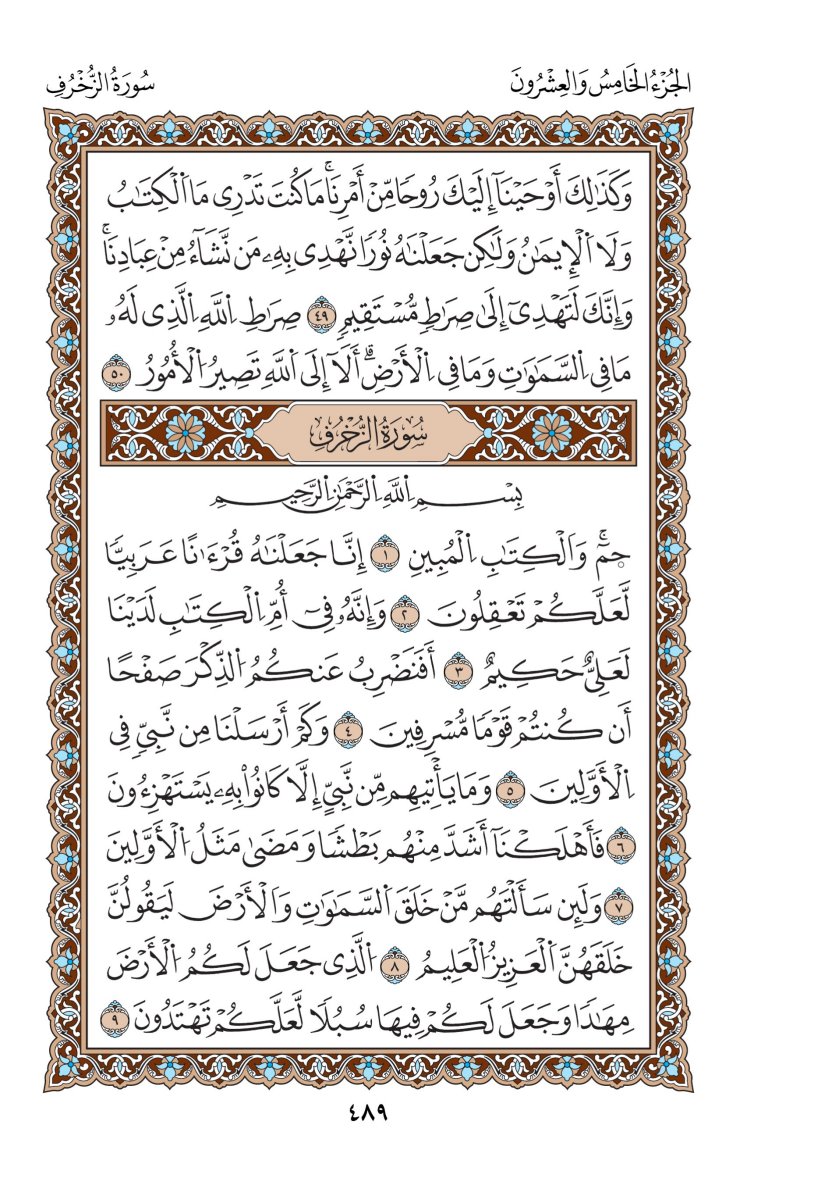 الجُزْءُ الخَامِسُ وَالعِشْرُونَ
سُورَةُ الزُّخْرُفِ
وَكَذَٰلِكَ أَوْحَيْنَآ إِلَيْكَ رُوحٗا مِّنْ أَمْرِنَاۚ مَا كُنتَ تَدْرِى مَا اَلْكِتَٰبُ
وَلَا اَلْإِيمَٰنُ وَلَٰكِن جَعَلْنَٰهُ نُورٗا نَّهْدِى بِهِۦ مَن نَّشَآءُ مِنْ عِبَادِنَاۚ
وَإِنَّكَ لَتَهْدِىٓ إِلَىٰ صِرَٰطٖ مُّسْتَقِيمٖ ٤٩ صِرَٰطِ اِللَّهِ اِلَّذِى لَهُۥ
مَا فِى اِلسَّمَٰوَٰتِ وَمَا فِى اِلْأَرْضِۗ أَلَآ إِلَى اَللَّهِ تَصِيرُ اُلْأُمُورُ ٥٠
سُورَةُ الزُّخْرُفِ
بِسْمِ اِللَّهِ اِلرَّحْمَٰنِ اِلرَّحِيمِ
حمٓۚ وَاَلْكِتَٰبِ اِلْمُبِينِ ١ إِنَّا جَعَلْنَٰهُ قُرْءَٰنًا عَرَبِيّٗا
لَّعَلَّكُمْ تَعْقِلُونَ ٢ وَإِنَّهُۥ فِىٓ أُمِّ اِلْكِتَٰبِ لَدَيْنَا
لَعَلِىٌّ حَكِيمٌ ٣ أَفَنَضْرِبُ عَنكُمُ اُلذِّكْرَ صَفْحًا
أَن كُنتُمْ قَوْمٗا مُّسْرِفِينَ ٤ وَكَمْ أَرْسَلْنَا مِن نَّبِىّٖ فِى
اِلْأَوَّلِينَ ٥ وَمَا يَأْتِيهِم مِّن نَّبِىٍّ إِلَّا كَانُواْ بِهِۦ يَسْتَهْزِءُونَ
٦ فَأَهْلَكْنَآ أَشَدَّ مِنْهُم بَطْشٗا وَمَضَىٰ مَثَلُ اُلْأَوَّلِينَ
٧ وَلَئِن سَأَلْتَهُم مَّنْ خَلَقَ اَلسَّمَٰوَٰتِ وَاَلْأَرْضَ لَيَقُولُنَّ
خَلَقَهُنَّ اَلْعَزِيزُ اُلْعَلِيمُ ٨ اُلَّذِى جَعَلَ لَكُمُ اُلْأَرْضَ
مِهَٰدٗا وَجَعَلَ لَكُمْ فِيهَا سُبُلٗا لَّعَلَّكُمْ تَهْتَدُونَ ٩
٤٨٩